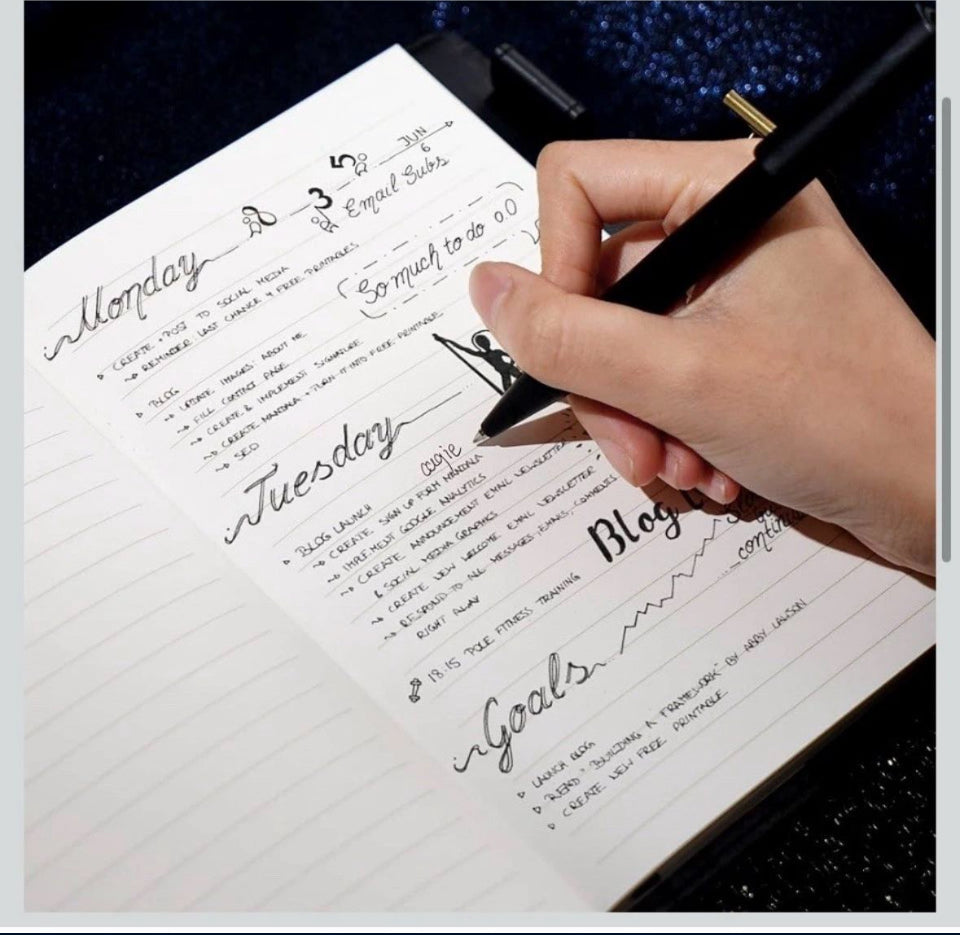 Monday
3
5
JUN
6
Email Subs
So much to do 0.0
CREATE + POST TO SOCIAL MEDIA
REMINDER LAST CHANCE 4 FREE PRINTABLES
BLOG
UPDATE IMAGES ABOUT ME
FILL CONTACT PAGE
CREATE & IMPLEMENT SIGNATURE
CREATE MANDALA + TURN IT INTO FREE PRINTABLE
SEO
Tuesday
BLOG LAUNCH
CREATE SIGN UP FORM MANDALA
IMPLEMENT GOOGLE ANALYTICS
CREATE ANNOUNCEMENT EMAIL NEWSLETTER
& SOCIAL MEDIA GRAPHICS
CREATE NEW WELCOME EMAIL NEWSLETTER
RESPOND TO ALL MESSAGES, EMAILS, COMMENTS
RIGHT AWAY
18:15 POLE FITNESS TRAINING
Blog
Goals
LAUNCH BLOG
READ "BUILDING A FRAMEWORK" BY ABBY LAWSON
CREATE NEW FREE PRINTABLE